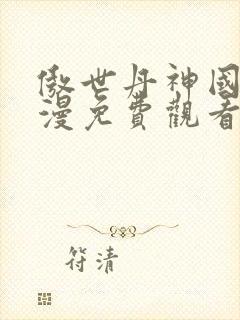 傲世丹神國
漫免費觀看
符清